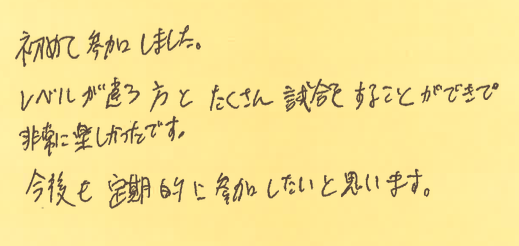 初めて参加しました。
レベルが違う方とたくさん試合をすることができて
非常に楽しかったです。
今後も定期的に参加したいと思います。